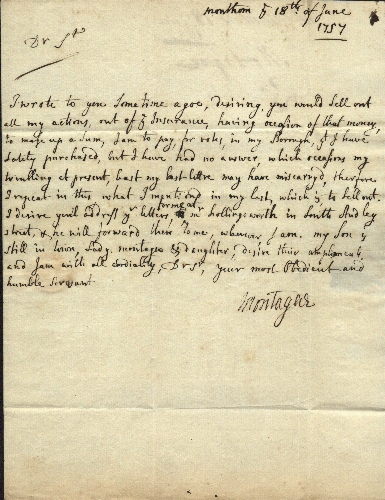 monthom ye 18th of June
1757
Dr Sr
I wrote to you Some time agoe, desiring, you would Sell out
all my actions, out of ye Insurance, having occasion of that money,
to make up a Sum, I am to pay, for votes, in my Borough, yt I have
lately purchased, but I have had no answer, which occasions my
trubling at present, Least my last letter may have miscarryd, therefore
I repeat in this what I mentiond in my last, which is, to sell out.
I desire you'l address yr letters, for me at mr Hollingsworth in South Audley
street, & he will forward them to me, wherever I am. my Son is
still in town, Lady montague & daughter, desire their compliments,
and I am with all cordiality, Dr Sr, your most Obedient and
humble Servant
Montague